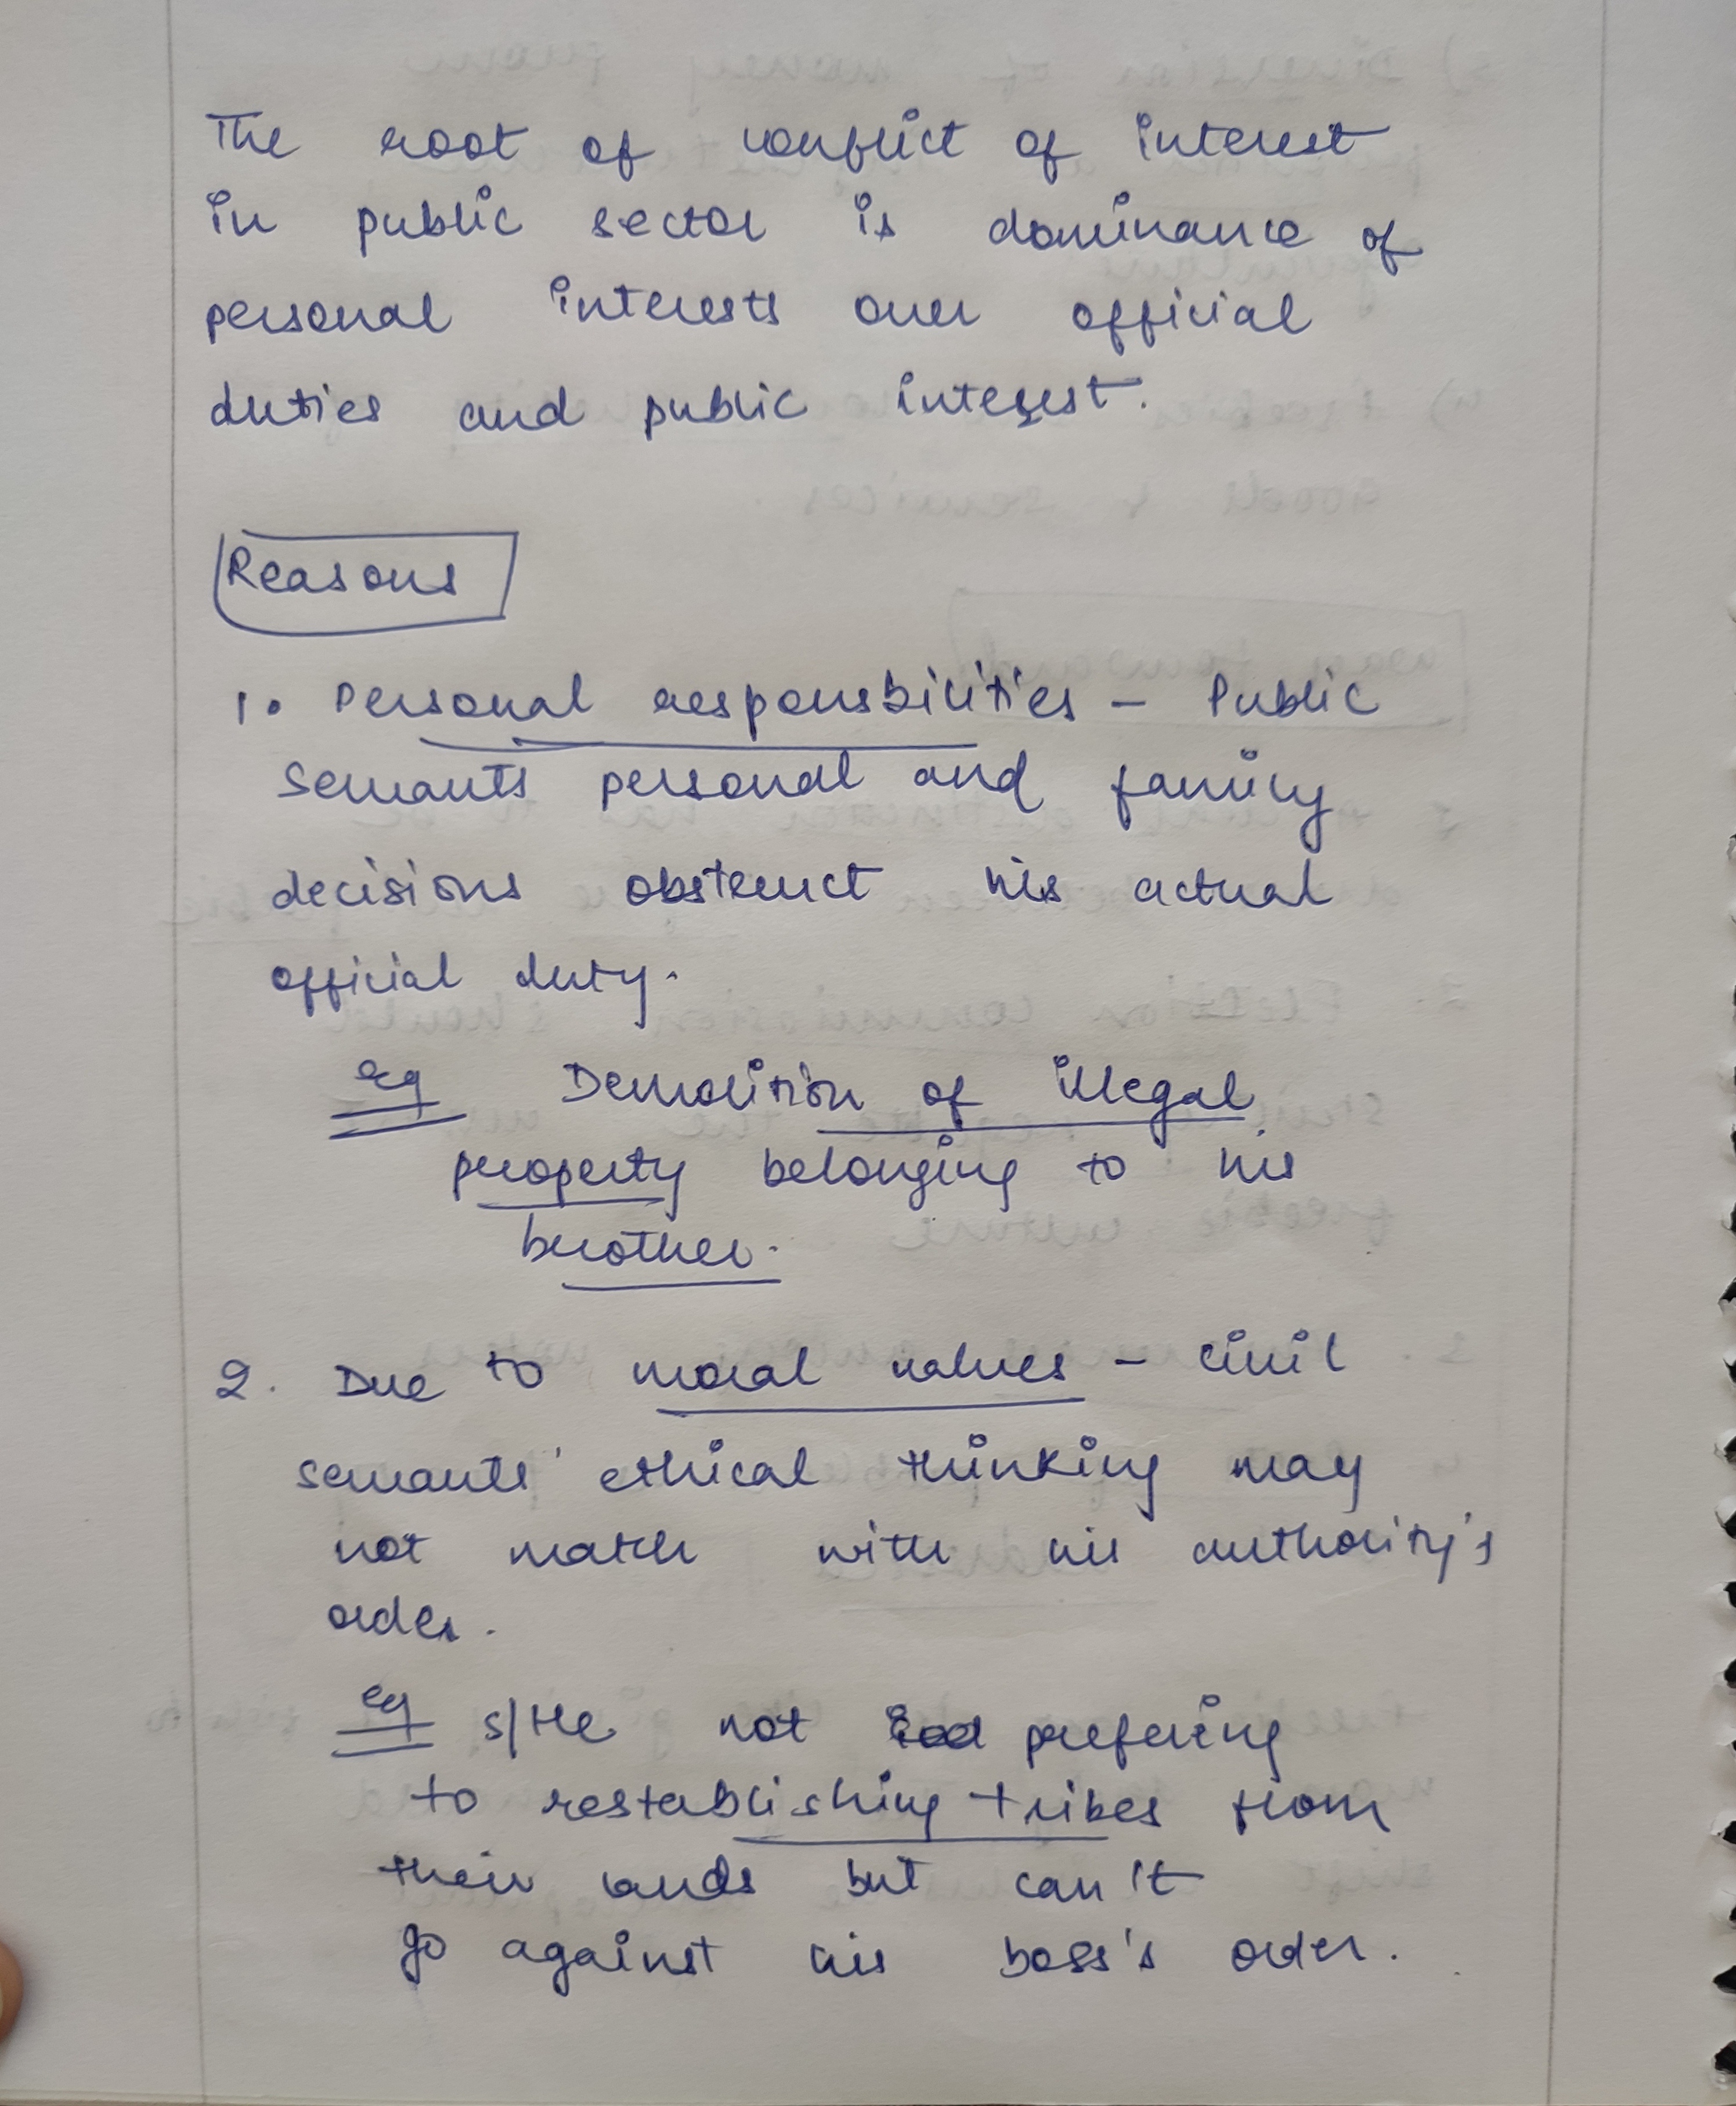 The root of conflict of interest
in public sector is dominance of
personal interests over official
duties and public interest.
Reasons
1. Personal responsbilities - Public
Servants personal and family
decisions obstruct his actual
official duty.
eg Demolition of illegal
property belonging to his
brother.
2. Due to moral values - civil
servants' ethical thinking may
not match with his authority's
order.
eg s/He not prefering
to restablishing tribes from
their lands but can't
go against his boss's order.